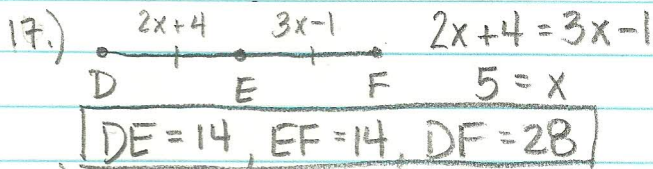 17.) 2x+4 3x-1 2x+4=3x-1
D E F 5=x
DE=14, EF=14, DF=28